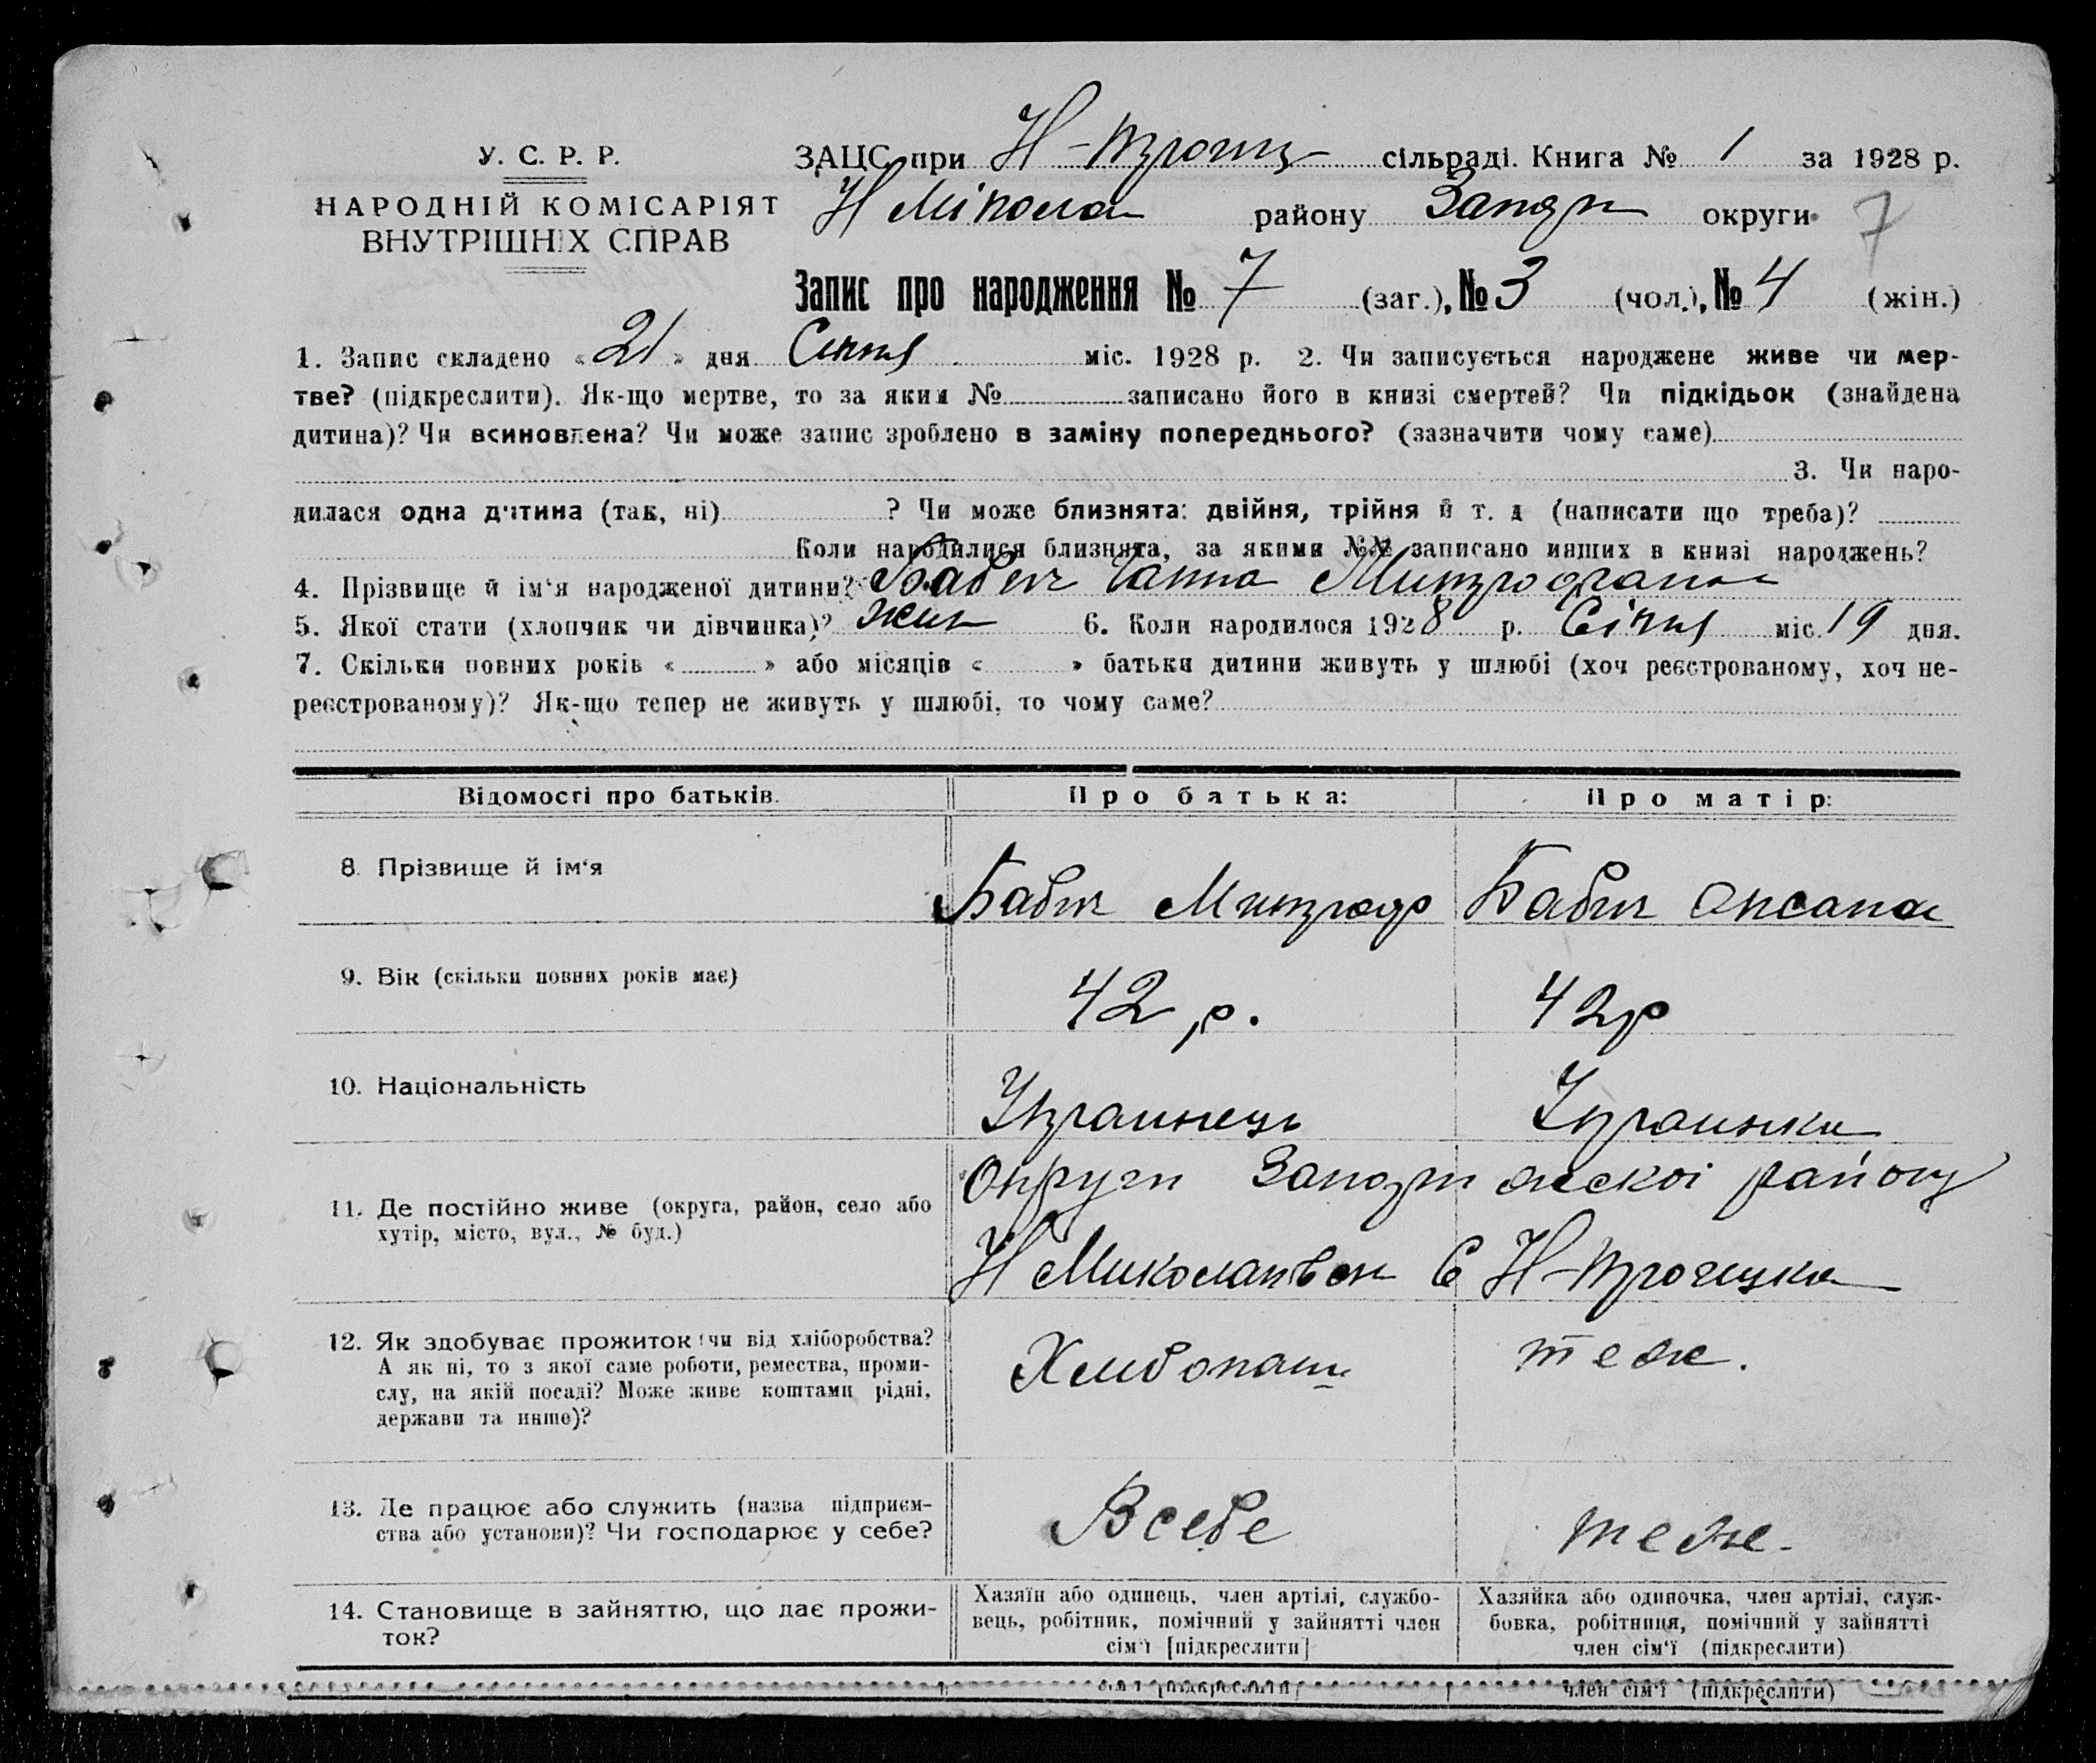 У. С. Р. Р.
НАРОДНІЙ КОМІСАРІЯТ
ВНУТРІШНІХ СПРАВ
ЗАЦС при Н-троиц сільраді. Книга № 1 за 1928 р.
Н Мікола району Запор округи 7
Запис про народження № 7 (заг.), № 3 (чол.), № 4 (жін.)
1. Запис складено «21» дня Січня міс. 1928 р. 2. Чи записується народжене живе чи мер-
тве? (підкреслити). Як-що мертве, то за яким № записано його в книзі смертей? Чи підкідьок (знайдена
дитина)? Чи всиновлена? Чи може запис зроблено в заміну попереднього? (зазначити чому саме)
3. Чи наро-
дилася одна дитина (так, ні) ? Чи може близнята: двійня, трійня й т. д (написати що треба)?
Коли народилися близнята, за якими №№ записано инших в книзі народжень?
4. Прізвище й ім'я народженої дитини? Бабич Ганна
5. Якої стати (хлопчик чи дівчинка)? жін 6. Коли народилося 1928 р. Січня міс. 19 дня.
7. Скільки повних років « » або місяців « » батьки дитини живуть у шлюбі (хоч реєстрованому, хоч не-
реєстрованому)? Як-що тепер не живуть у шлюбі, то чому саме?
Відомості про батьків. Про батька: Про матір:
8. Прізвище й ім'я Бабич Митрофр Бабич Оксана
9. Вік (скільки повних років має) 42 р. 42 р
10. Національність Украинець Украинка
11. Де постійно живе (округа, район, село або
хутір, місто, вул., № буд.)
Округи Запоріжскоі району
Н Миколаивск С Н-троицка
12. Як здобуває прожиток (чи від хліборобства?
А як ні, то з якої саме роботи, ремества, проми-
слу, на якій посаді? Може живе коштами рідні,
держави та инше)?
Хлибопаш теж.
13. Де працює або служить (назва підприєм-
ства або установи)? Чи господарює у себе?
Всебе теж.
14. Становище в зайняттю, що дає прожи-
ток?
Хазяїн або одинець, член артілі, службо-
вець, робітник, помічний у зайнятті член
сім'ї [підкреслити]
Хазяйка або одиночка, член артілі, служ-
бовка, робітниця, помічний у зайнятті
член сім'ї (підкреслити)
член сім'ї (підкреслити)